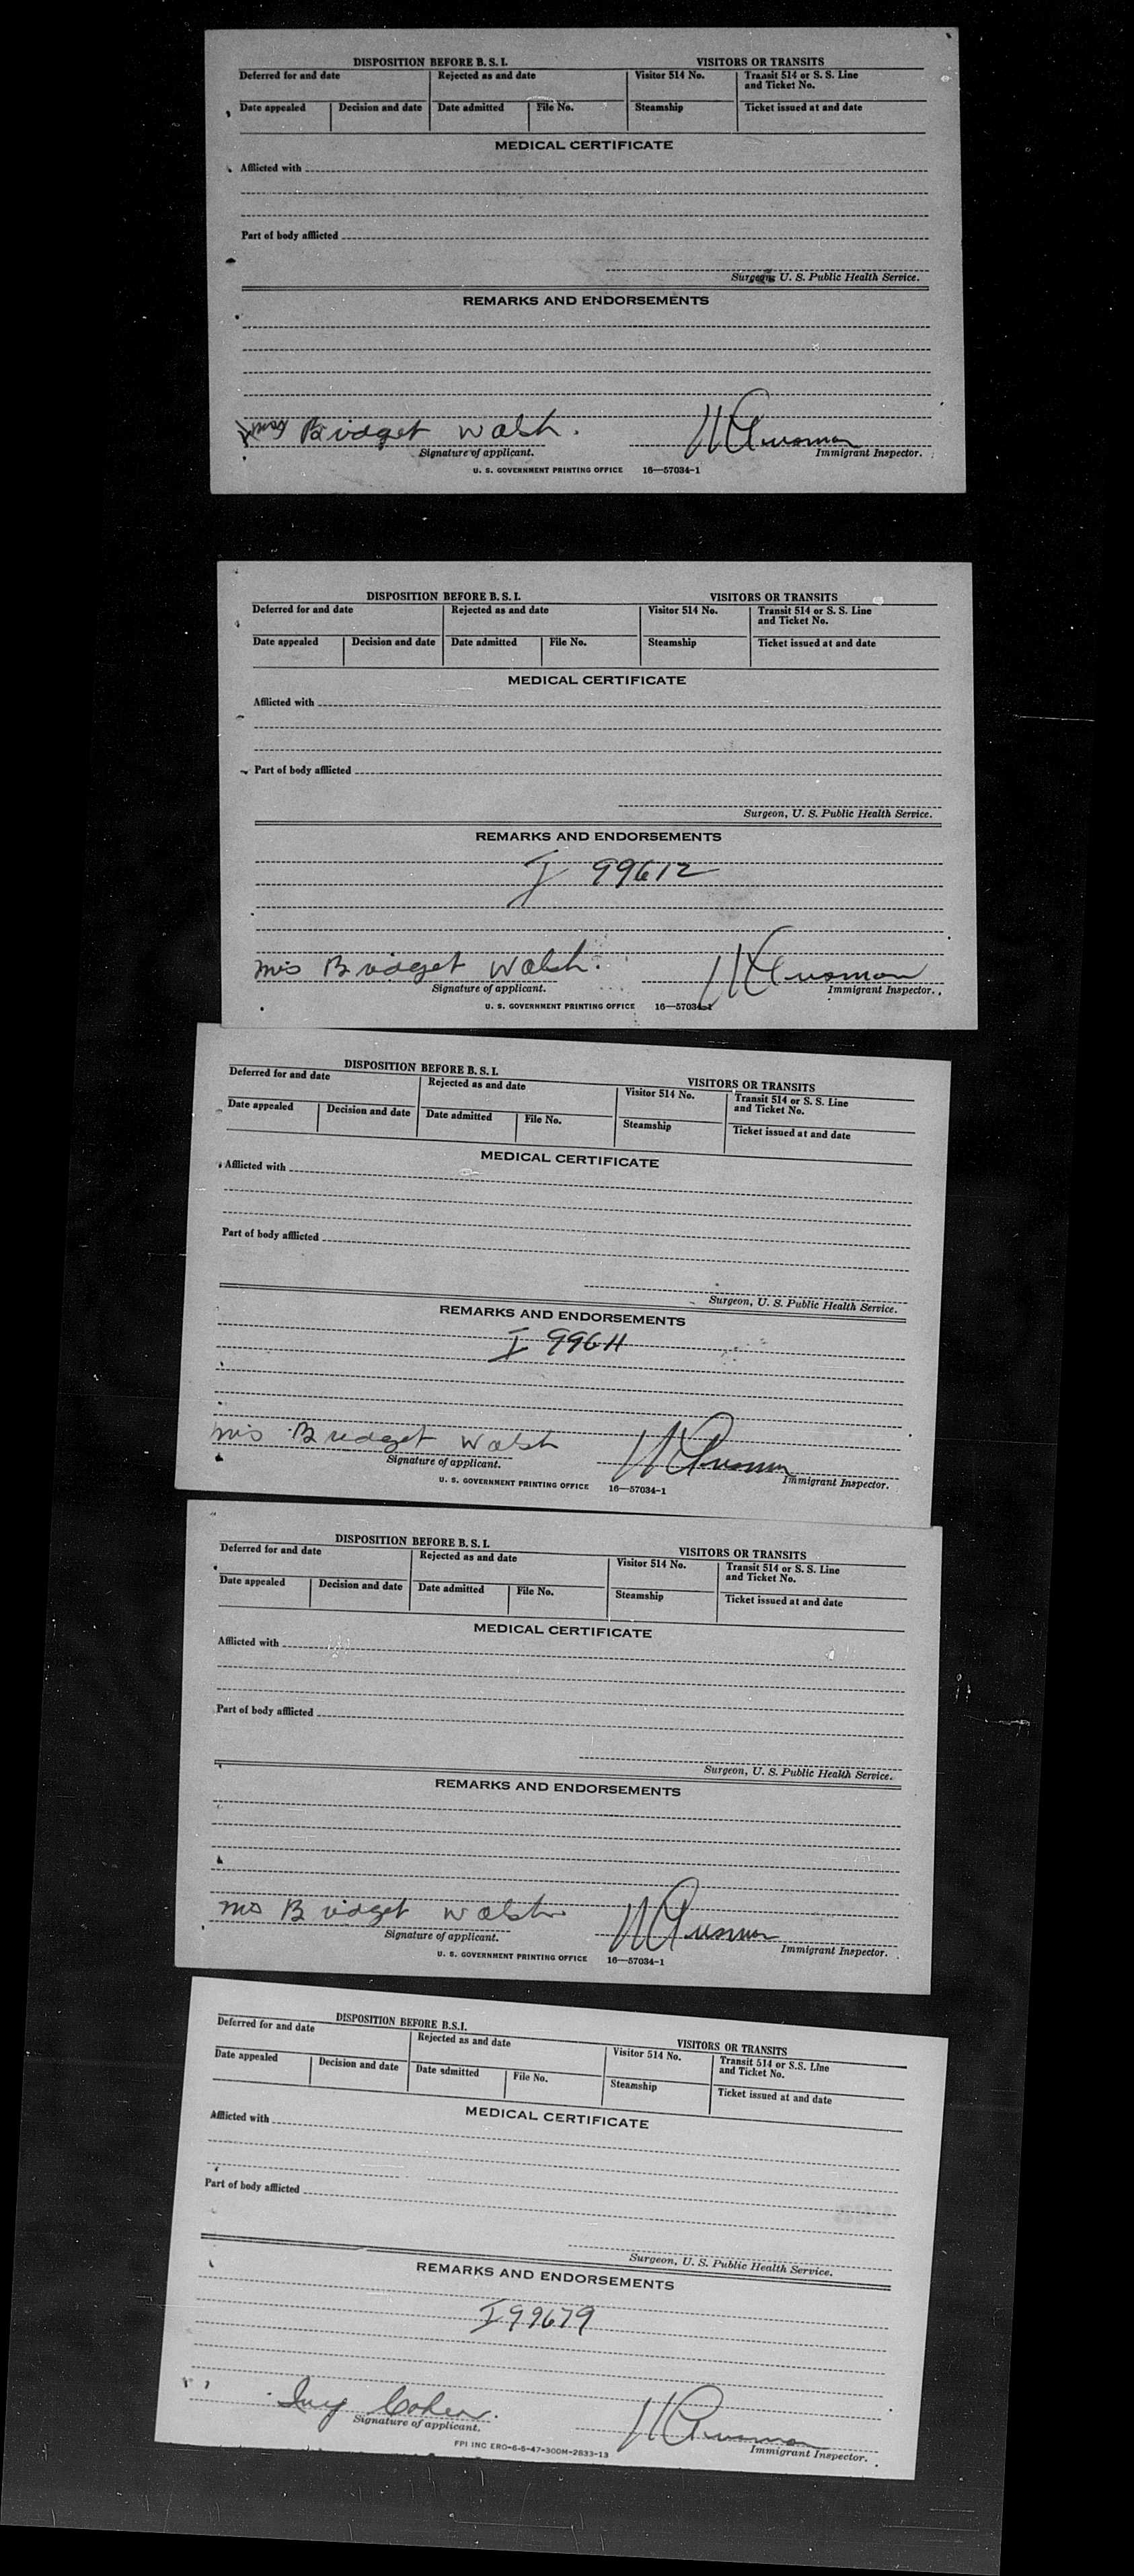 DISPOSITION BEFORE B. S. I. VISITORS OR TRANSITS
Deferred for and date Rejected as and date Visitor 514 No. Transit 514 or S. S. Line and Ticket No.
Date appealed Decision and date Date admitted File No. Steamship Ticket issued at and date
MEDICAL CERTIFICATE
Afflicted with
Part of body afflicted
Surgeon, U. S. Public Health Service.
REMARKS AND ENDORSEMENTS
Bridget Walsh.
Signature of applicant. Immigrant Inspector.
U. S. GOVERNMENT PRINTING OFFICE 16—57034-1
DISPOSITION BEFORE B. S. I. VISITORS OR TRANSITS
Deferred for and date Rejected as and date Visitor 514 No. Transit 514 or S. S. Line and Ticket No.
Date appealed Decision and date Date admitted File No. Steamship Ticket issued at and date
MEDICAL CERTIFICATE
Afflicted with
Part of body afflicted
Surgeon, U. S. Public Health Service.
REMARKS AND ENDORSEMENTS
I 99612
Mrs Bridget Walsh.
Signature of applicant. Immigrant Inspector.
U. S. GOVERNMENT PRINTING OFFICE 16—57034-1
DISPOSITION BEFORE B. S. I. VISITORS OR TRANSITS
Deferred for and date Rejected as and date Visitor 514 No. Transit 514 or S. S. Line and Ticket No.
Date appealed Decision and date Date admitted File No. Steamship Ticket issued at and date
MEDICAL CERTIFICATE
Afflicted with
Part of body afflicted
Surgeon, U. S. Public Health Service.
REMARKS AND ENDORSEMENTS
I 99611
Mrs Bridget Walsh
Signature of applicant. Immigrant Inspector.
U. S. GOVERNMENT PRINTING OFFICE 16—57034-1
DISPOSITION BEFORE B. S. I. VISITORS OR TRANSITS
Deferred for and date Rejected as and date Visitor 514 No. Transit 514 or S. S. Line and Ticket No.
Date appealed Decision and date Date admitted File No. Steamship Ticket issued at and date
MEDICAL CERTIFICATE
Afflicted with
Part of body afflicted
Surgeon, U. S. Public Health Service.
REMARKS AND ENDORSEMENTS
Mrs Bridget Walsh
Signature of applicant. Immigrant Inspector.
U. S. GOVERNMENT PRINTING OFFICE 16—57034-1
DISPOSITION BEFORE B.S.I. VISITORS OR TRANSITS
Deferred for and date Rejected as and date Visitor 514 No. Transit 514 or S.S. Line and Ticket No.
Date appealed Decision and date Date admitted File No. Steamship Ticket issued at and date
MEDICAL CERTIFICATE
Afflicted with
Part of body afflicted
Surgeon, U. S. Public Health Service.
REMARKS AND ENDORSEMENTS
I 99679
Ivy Cohen.
Signature of applicant. Immigrant Inspector.
FPI INC ERO-6-5-47-300M-2833-13